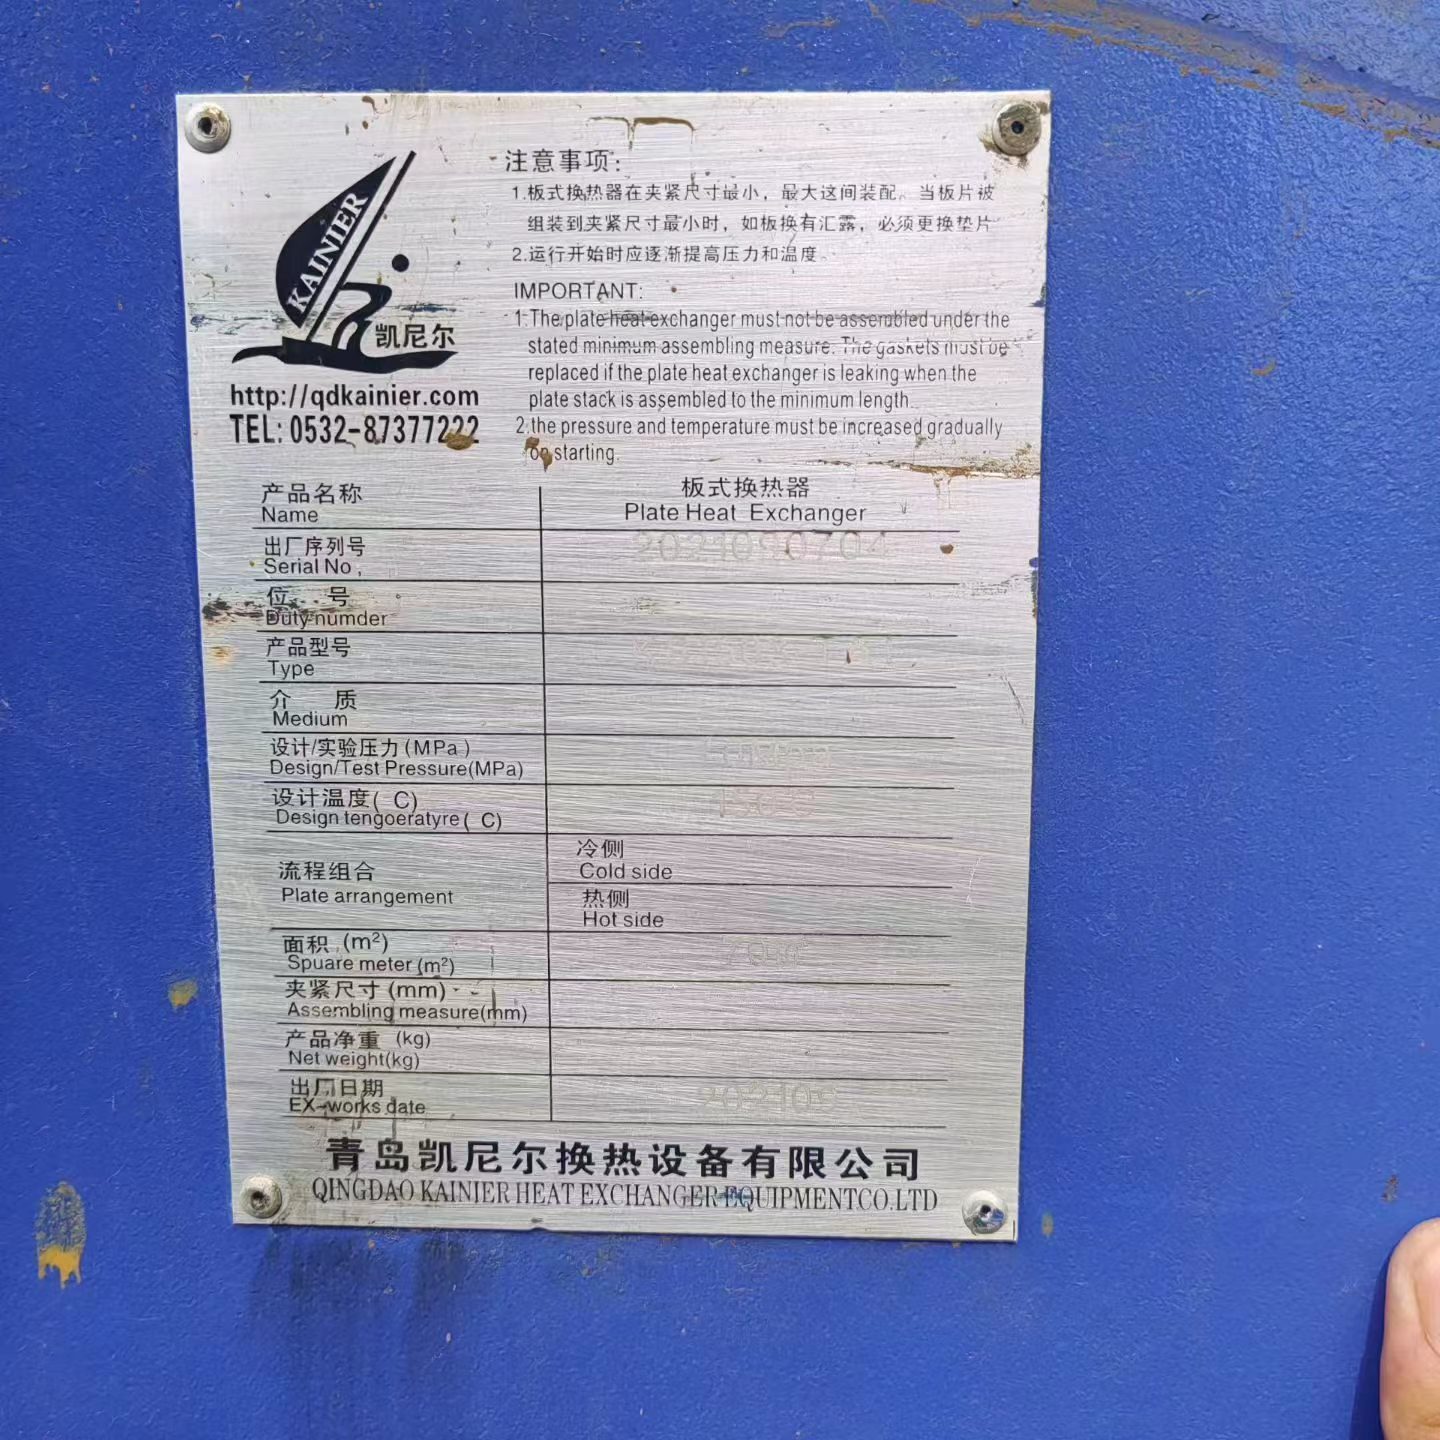 KAINIER
凯尼尔
http://qdkainier.com
TEL: 0532-87377222
注意事项:
1.板式换热器在夹紧尺寸最小，最大这间装配。当板片被
组装到夹紧尺寸最小时，如板换有汇露，必须更换垫片
2.运行开始时应逐渐提高压力和温度。
IMPORTANT:
1.The plate heat exchanger must not be assembled under the
stated minimum assembling measure. The gaskets must be
replaced if the plate heat exchanger is leaking when the
plate stack is assembled to the minimum length.
2.the pressure and temperature must be increased gradually
on starting.
产品名称 板式换热器
Name Plate Heat Exchanger
出厂序列号
Serial No,
位 号
Duty numder
产品型号
Type
介 质
Medium
设计/实验压力(MPa)
Design/Test Pressure(MPa)
设计温度( C)
Design tengoeratyre( C)
流程组合
Plate arrangement
冷侧
Cold side
热侧
Hot side
面积 (m²)
Spuare meter (m²)
夹紧尺寸(mm)
Assembling measure(mm)
产品净重 (kg)
Net weight(kg)
出厂日期 202109
EX-works date
青岛凯尼尔换热设备有限公司
QINGDAO KAINIER HEAT EXCHANGER EQUIPMENT CO.LTD